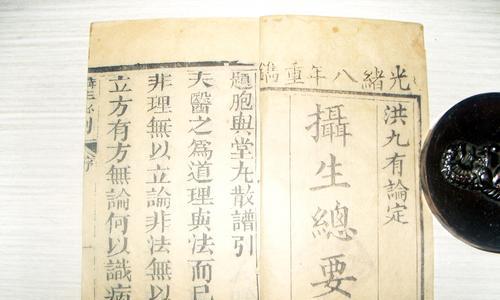 光緒八年重鐫
洪九有論定
攝生總要
題胞與堂丸散譜引
夫醫之爲道理與法而已
非理無以立論非法無以
立方有方無論何以識病
序